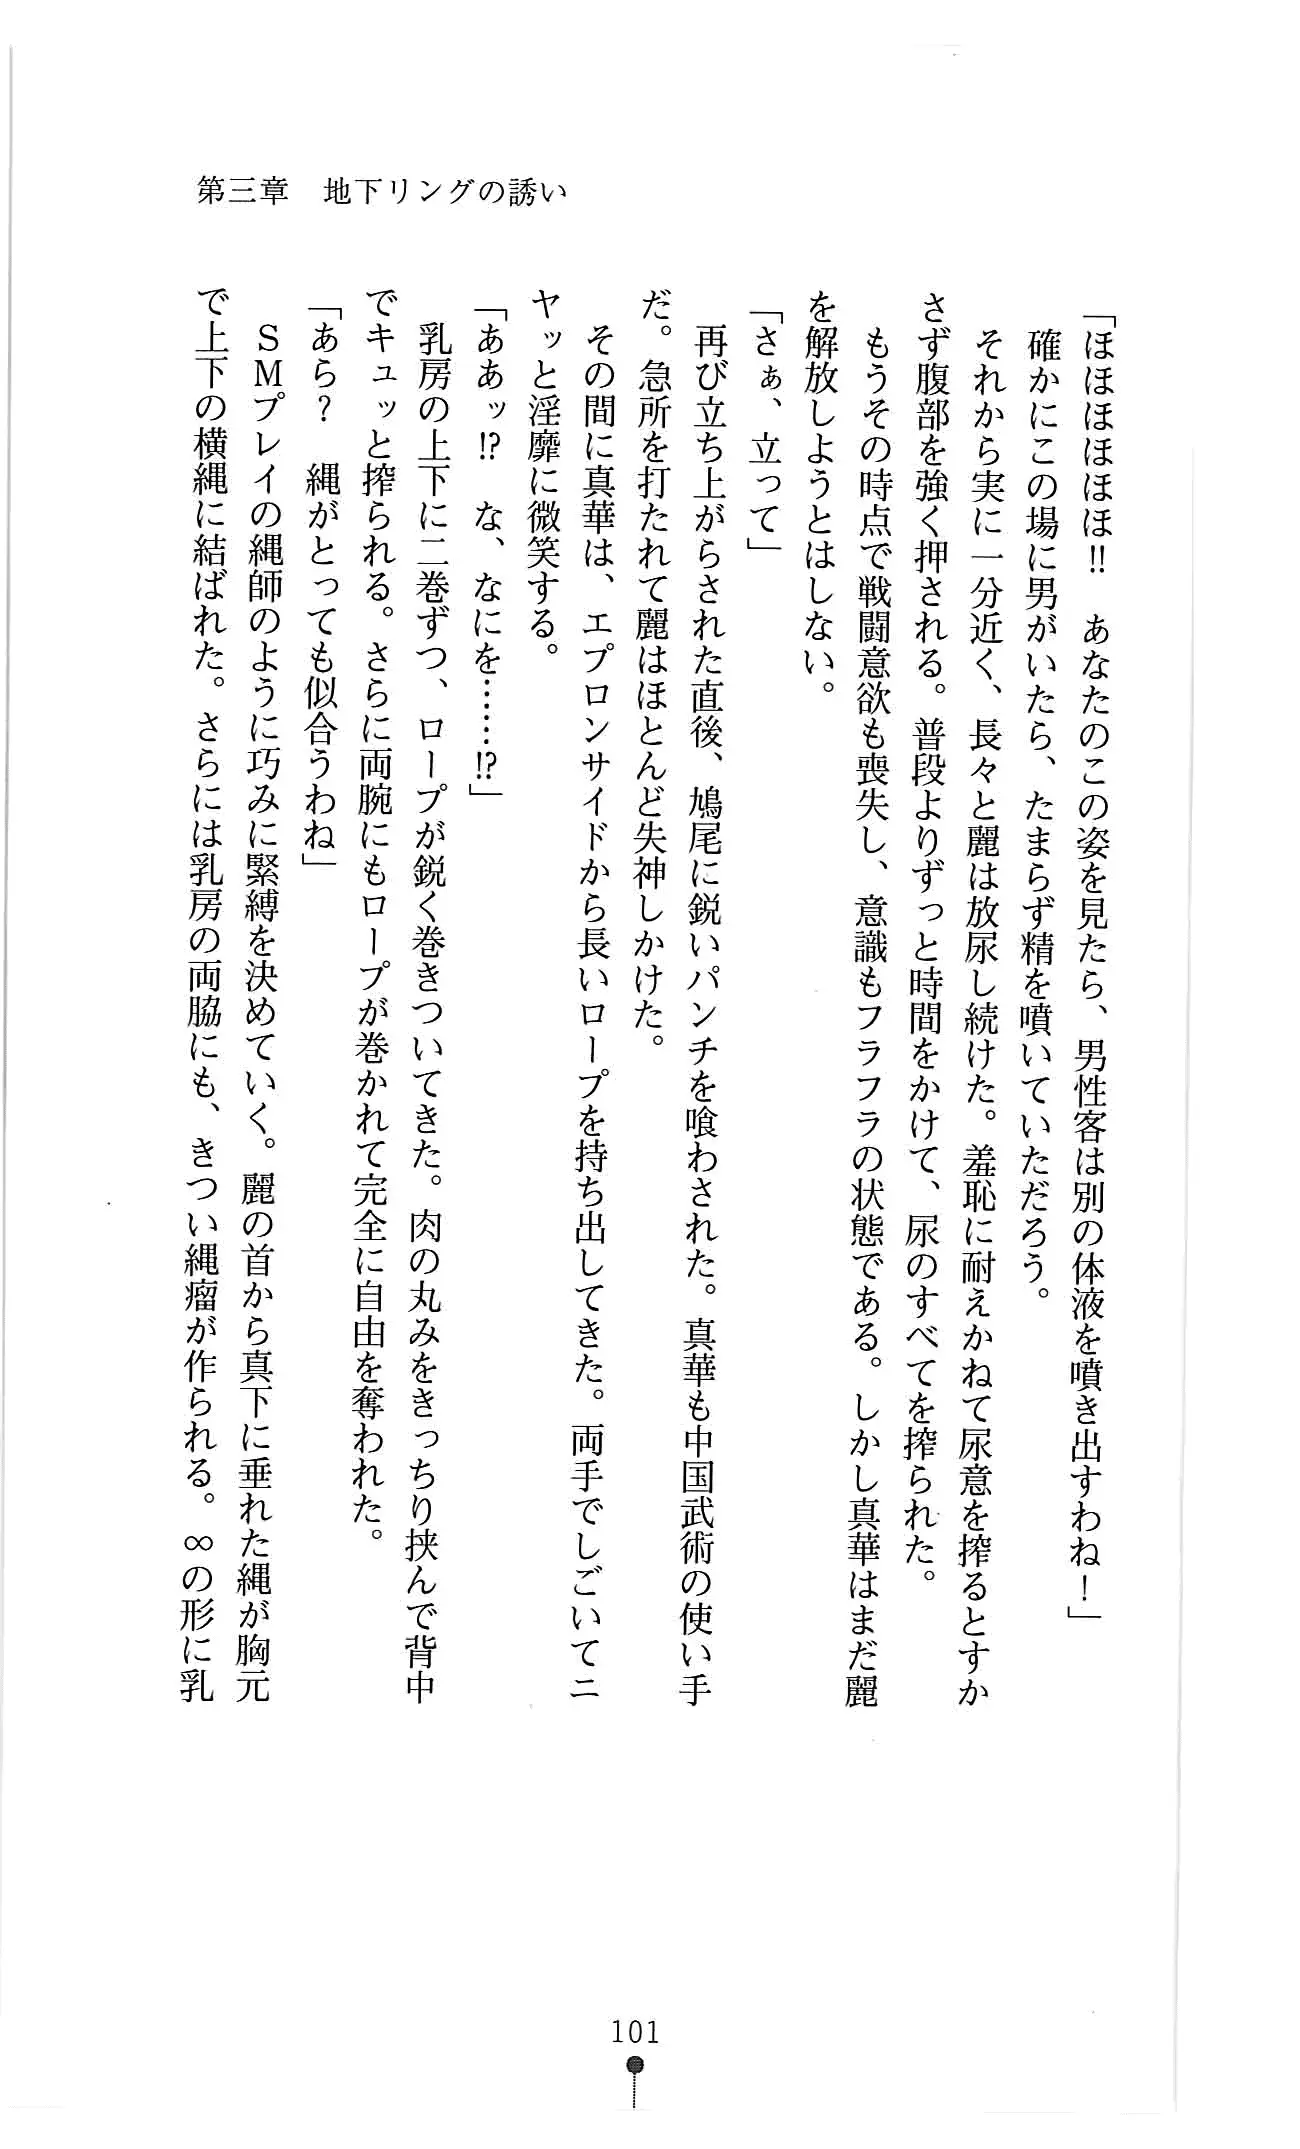 第三章　地下リングの誘い
「ほほほほほほ!!　あなたのこの姿を見たら、男性客は別の体液を噴き出すわね！」
確かにこの場に男がいたら、たまらず精を噴いていただろう。
それから実に一分近く、長々と麗は放尿し続けた。羞恥に耐えかねて尿意を搾るとすか
さず腹部を強く押される。普段よりずっと時間をかけて、尿のすべてを搾られた。
もうその時点で戦闘意欲も喪失し、意識もフラフラの状態である。しかし真華はまだ麗
を解放しようとはしない。
「さぁ、立って」
再び立ち上がらされた直後、鳩尾に鋭いパンチを喰わされた。真華も中国武術の使い手
だ。急所を打たれて麗はほとんど失神しかけた。
その間に真華は、エプロンサイドから長いロープを持ち出してきた。両手でしごいてニ
ヤッと淫靡に微笑する。
「ああッ!?　な、なにを……!?」
乳房の上下に二巻ずつ、ロープが鋭く巻きついてきた。肉の丸みをきっちり挟んで背中
でキュッと搾られる。さらに両腕にもロープが巻かれて完全に自由を奪われた。
「あら？　縄がとっても似合うわね」
ＳＭプレイの縄師のように巧みに緊縛を決めていく。麗の首から真下に垂れた縄が胸元
で上下の横縄に結ばれた。さらには乳房の両脇にも、きつい縄瘤が作られる。∞の形に乳
101